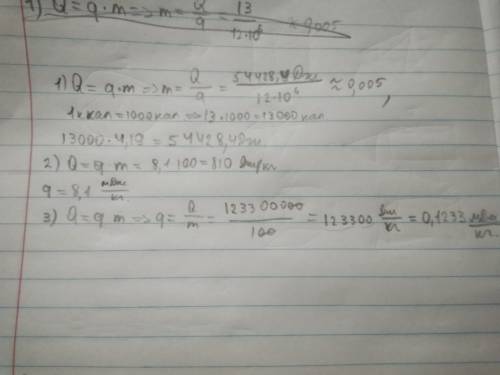 1) Q = q · m => m = Q/q = 13/12·10⁶ ≈ 0,005
1) Q = q · m => m = Q/q = 54428,4 Дж/12·10⁶ ≈ 0,005,
1 ккал = 1000 кал => 13·1000 = 13000 кал
13000 · 4,19 = 54428,4 Дж.
2) Q = q m = 8,1·100 = 810 Дж/кг
q = 8,1 мДж/кг.
3) Q = q m => q = Q/m = 123300000/100 = 123300 Дж/кг = 0,1233 мДж/кг.